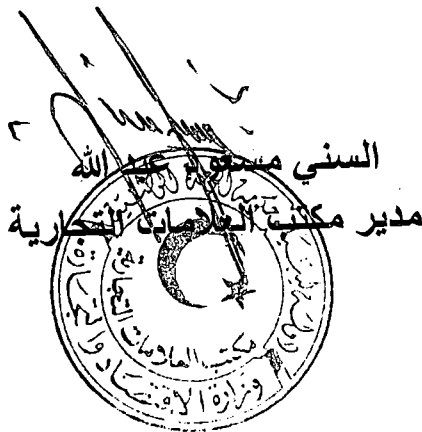 السني مسعود عبد الله
مدير مكتب العلامات التجارية
مكتب العلامات التجارية
وزارة الاقتصاد والتجارة